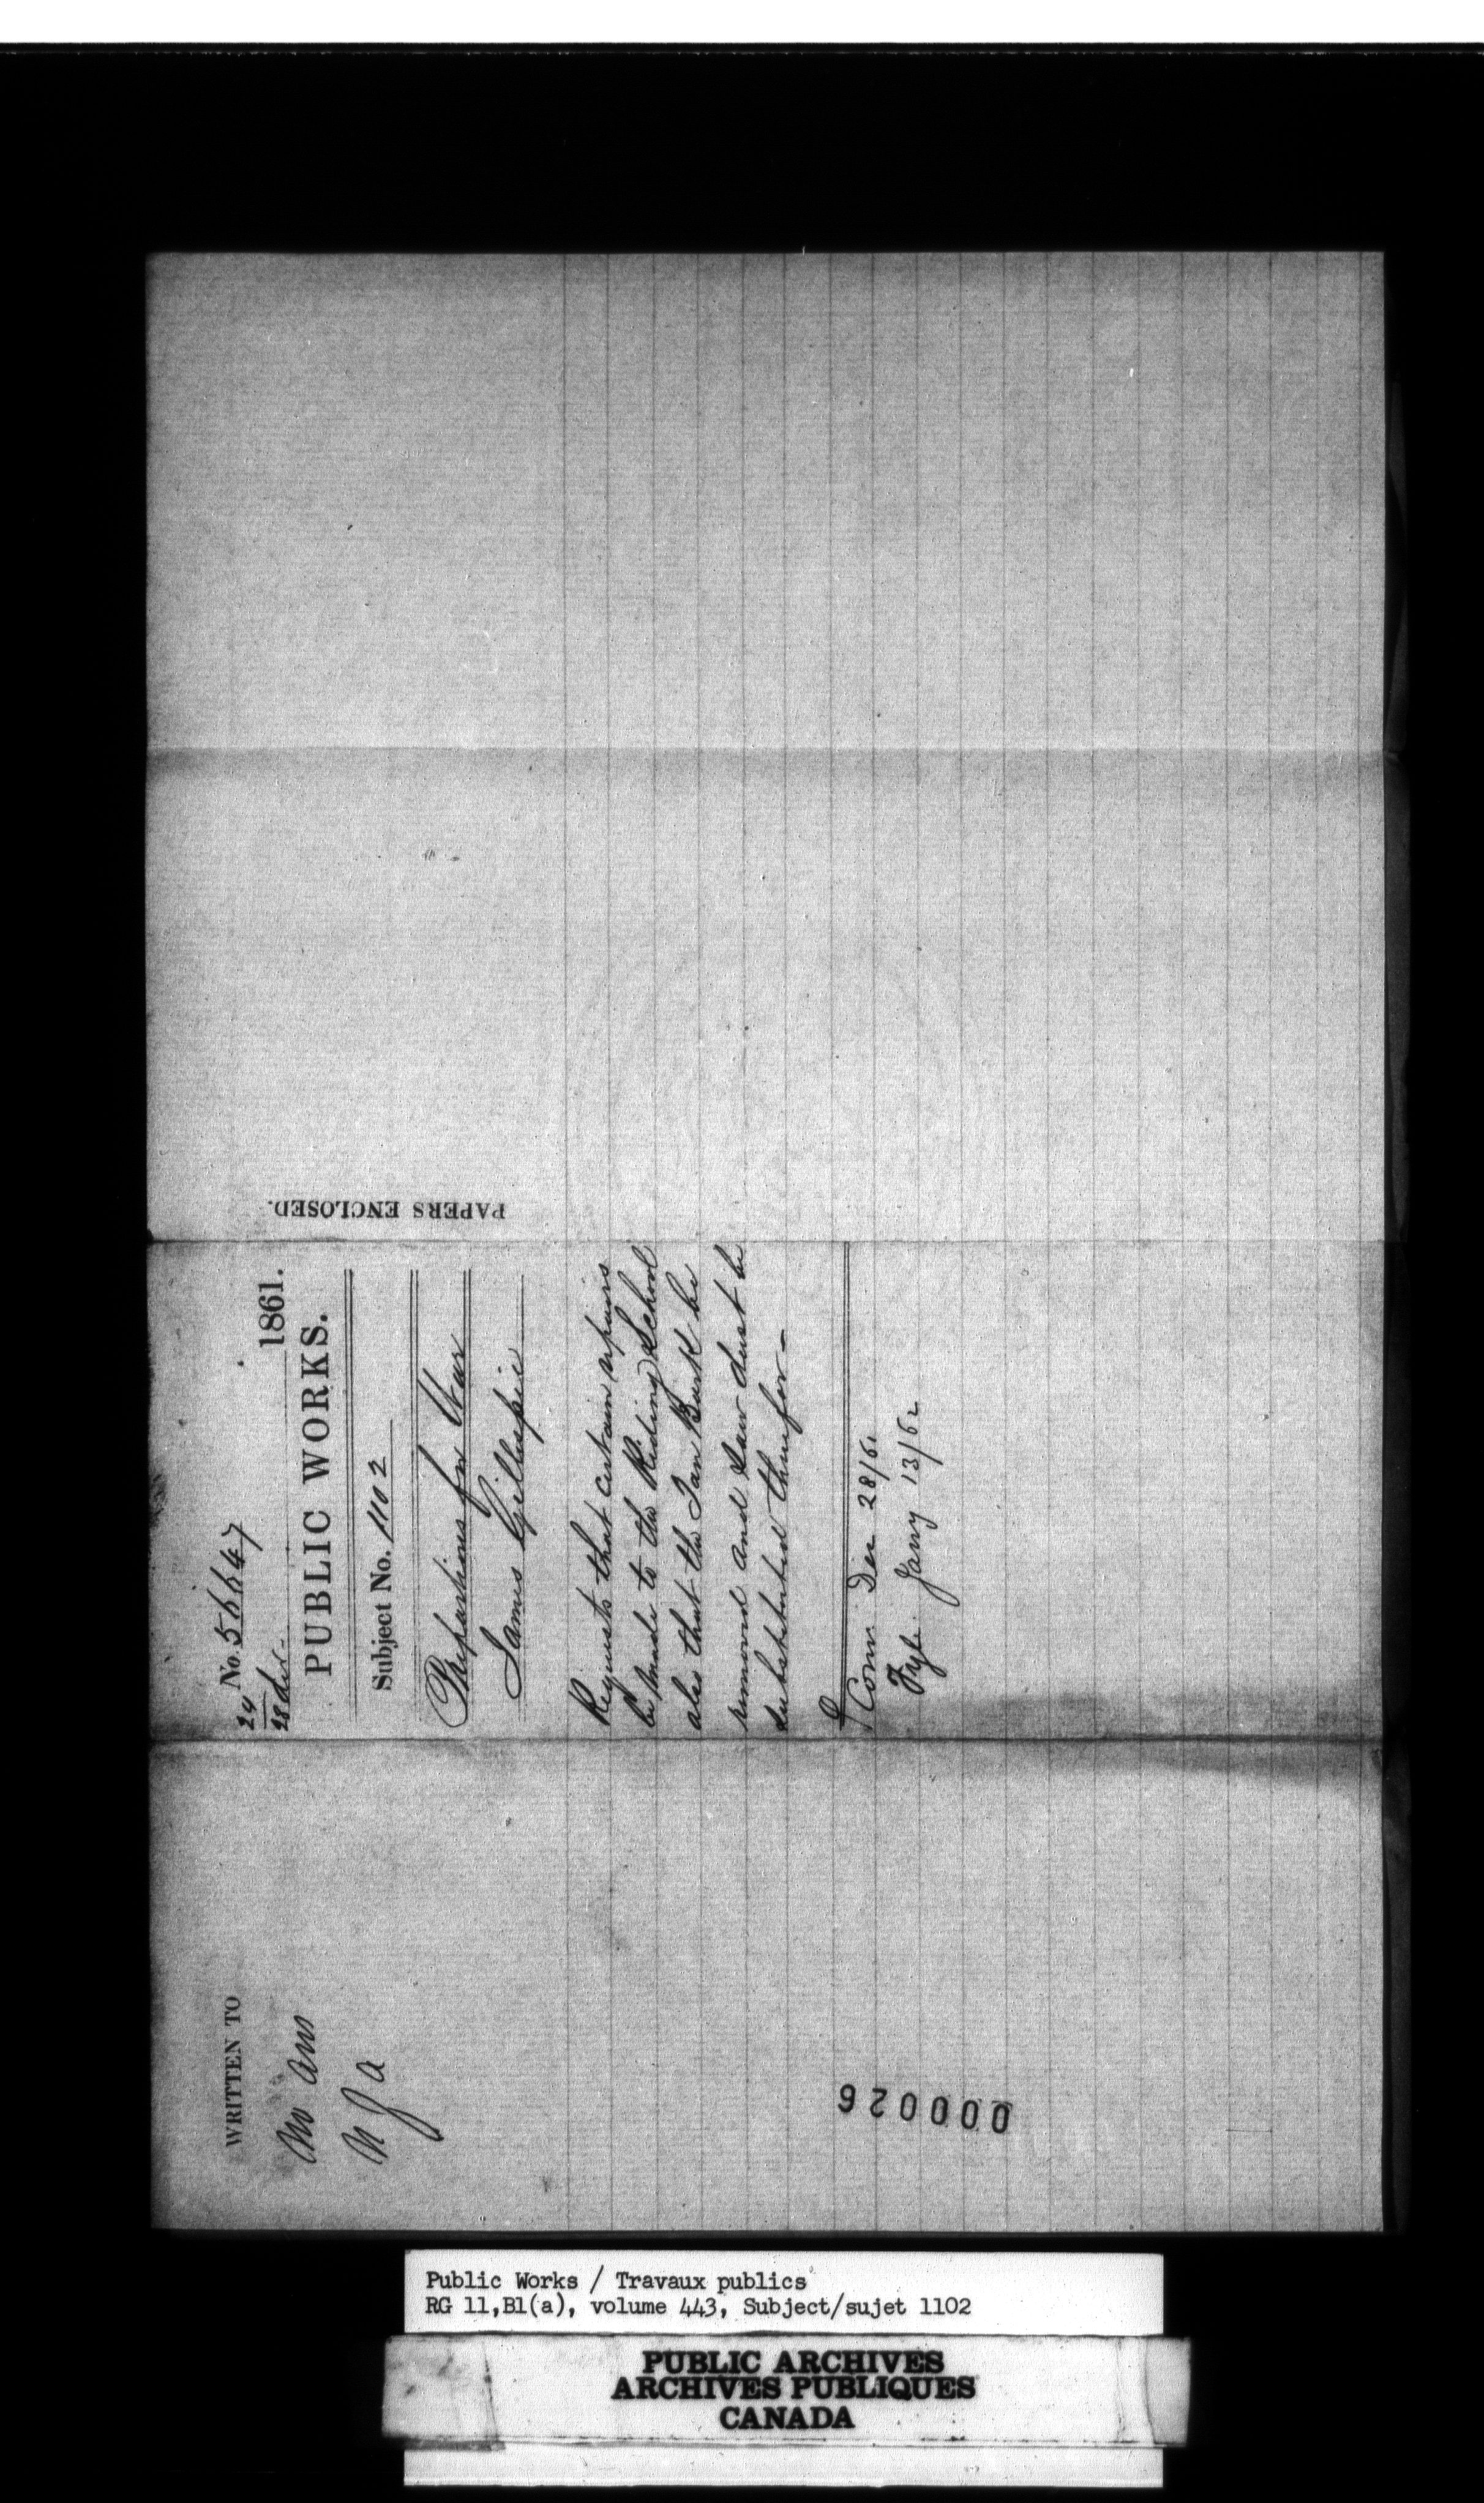 WRITTEN TO
No ans
N J a
000026
No. 56647
24
28 Dec. 1861.
PUBLIC WORKS.
Subject No. 1102
Preparations for War
James Gillespie
Requests that certain repairs
be made to the Riding School
also that the Tan Bark be
removed and Saw dust be
substituted therefor—
Com Dec 28/61
Fyle Jany 13/62
PAPERS ENCLOSED.
Public Works / Travaux publics
RG 11,B1(a), volume 443, Subject/sujet 1102
PUBLIC ARCHIVES
ARCHIVES PUBLIQUES
CANADA